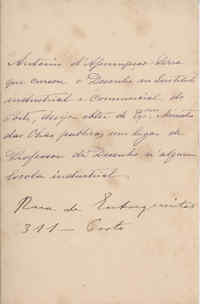 Antonio d'Assumpção Serra
que cursou o Desenho no Instituto
industrial e Commercial do
Porto, deseja obter do Exmo. Ministro
das Obras publicas um lugar de
Professor de Desenho n'alguma
Escola industrial
Rua de Entrequintas
311 — Porto